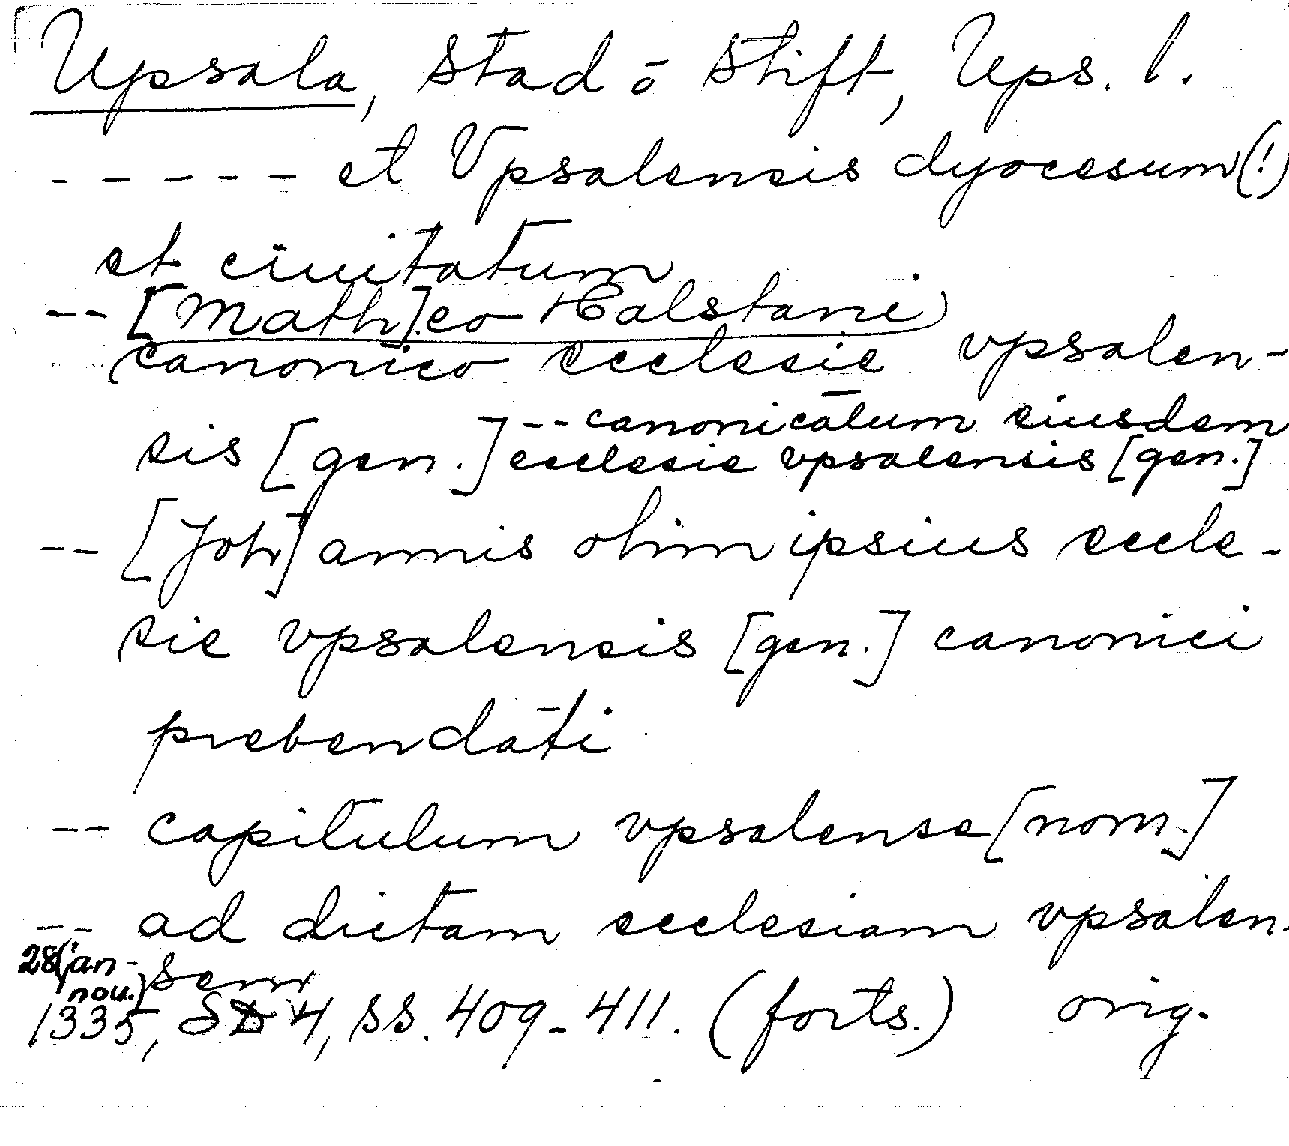 Upsala, stad o stift, Ups. l.
- - - - - et Vpsalensis dyocesum (!)
et ciuitatum
-- [Math]eo Kalstani
canonico ecclesie vpsalen-
sis [gen.] -- canonicatum eiusdem
ecclesie vpsalensis [gen.]
-- [Joh]annis olim ipsius eccle-
sie vpsalensis [gen.] canonici
prebendati
-- capitulum vpsalense [nom.]
-- ad dictam ecclesiam vpsalen-
sem
28 (jan-
nov.)
1335, SD 4, ss. 409-411. (forts.) orig.